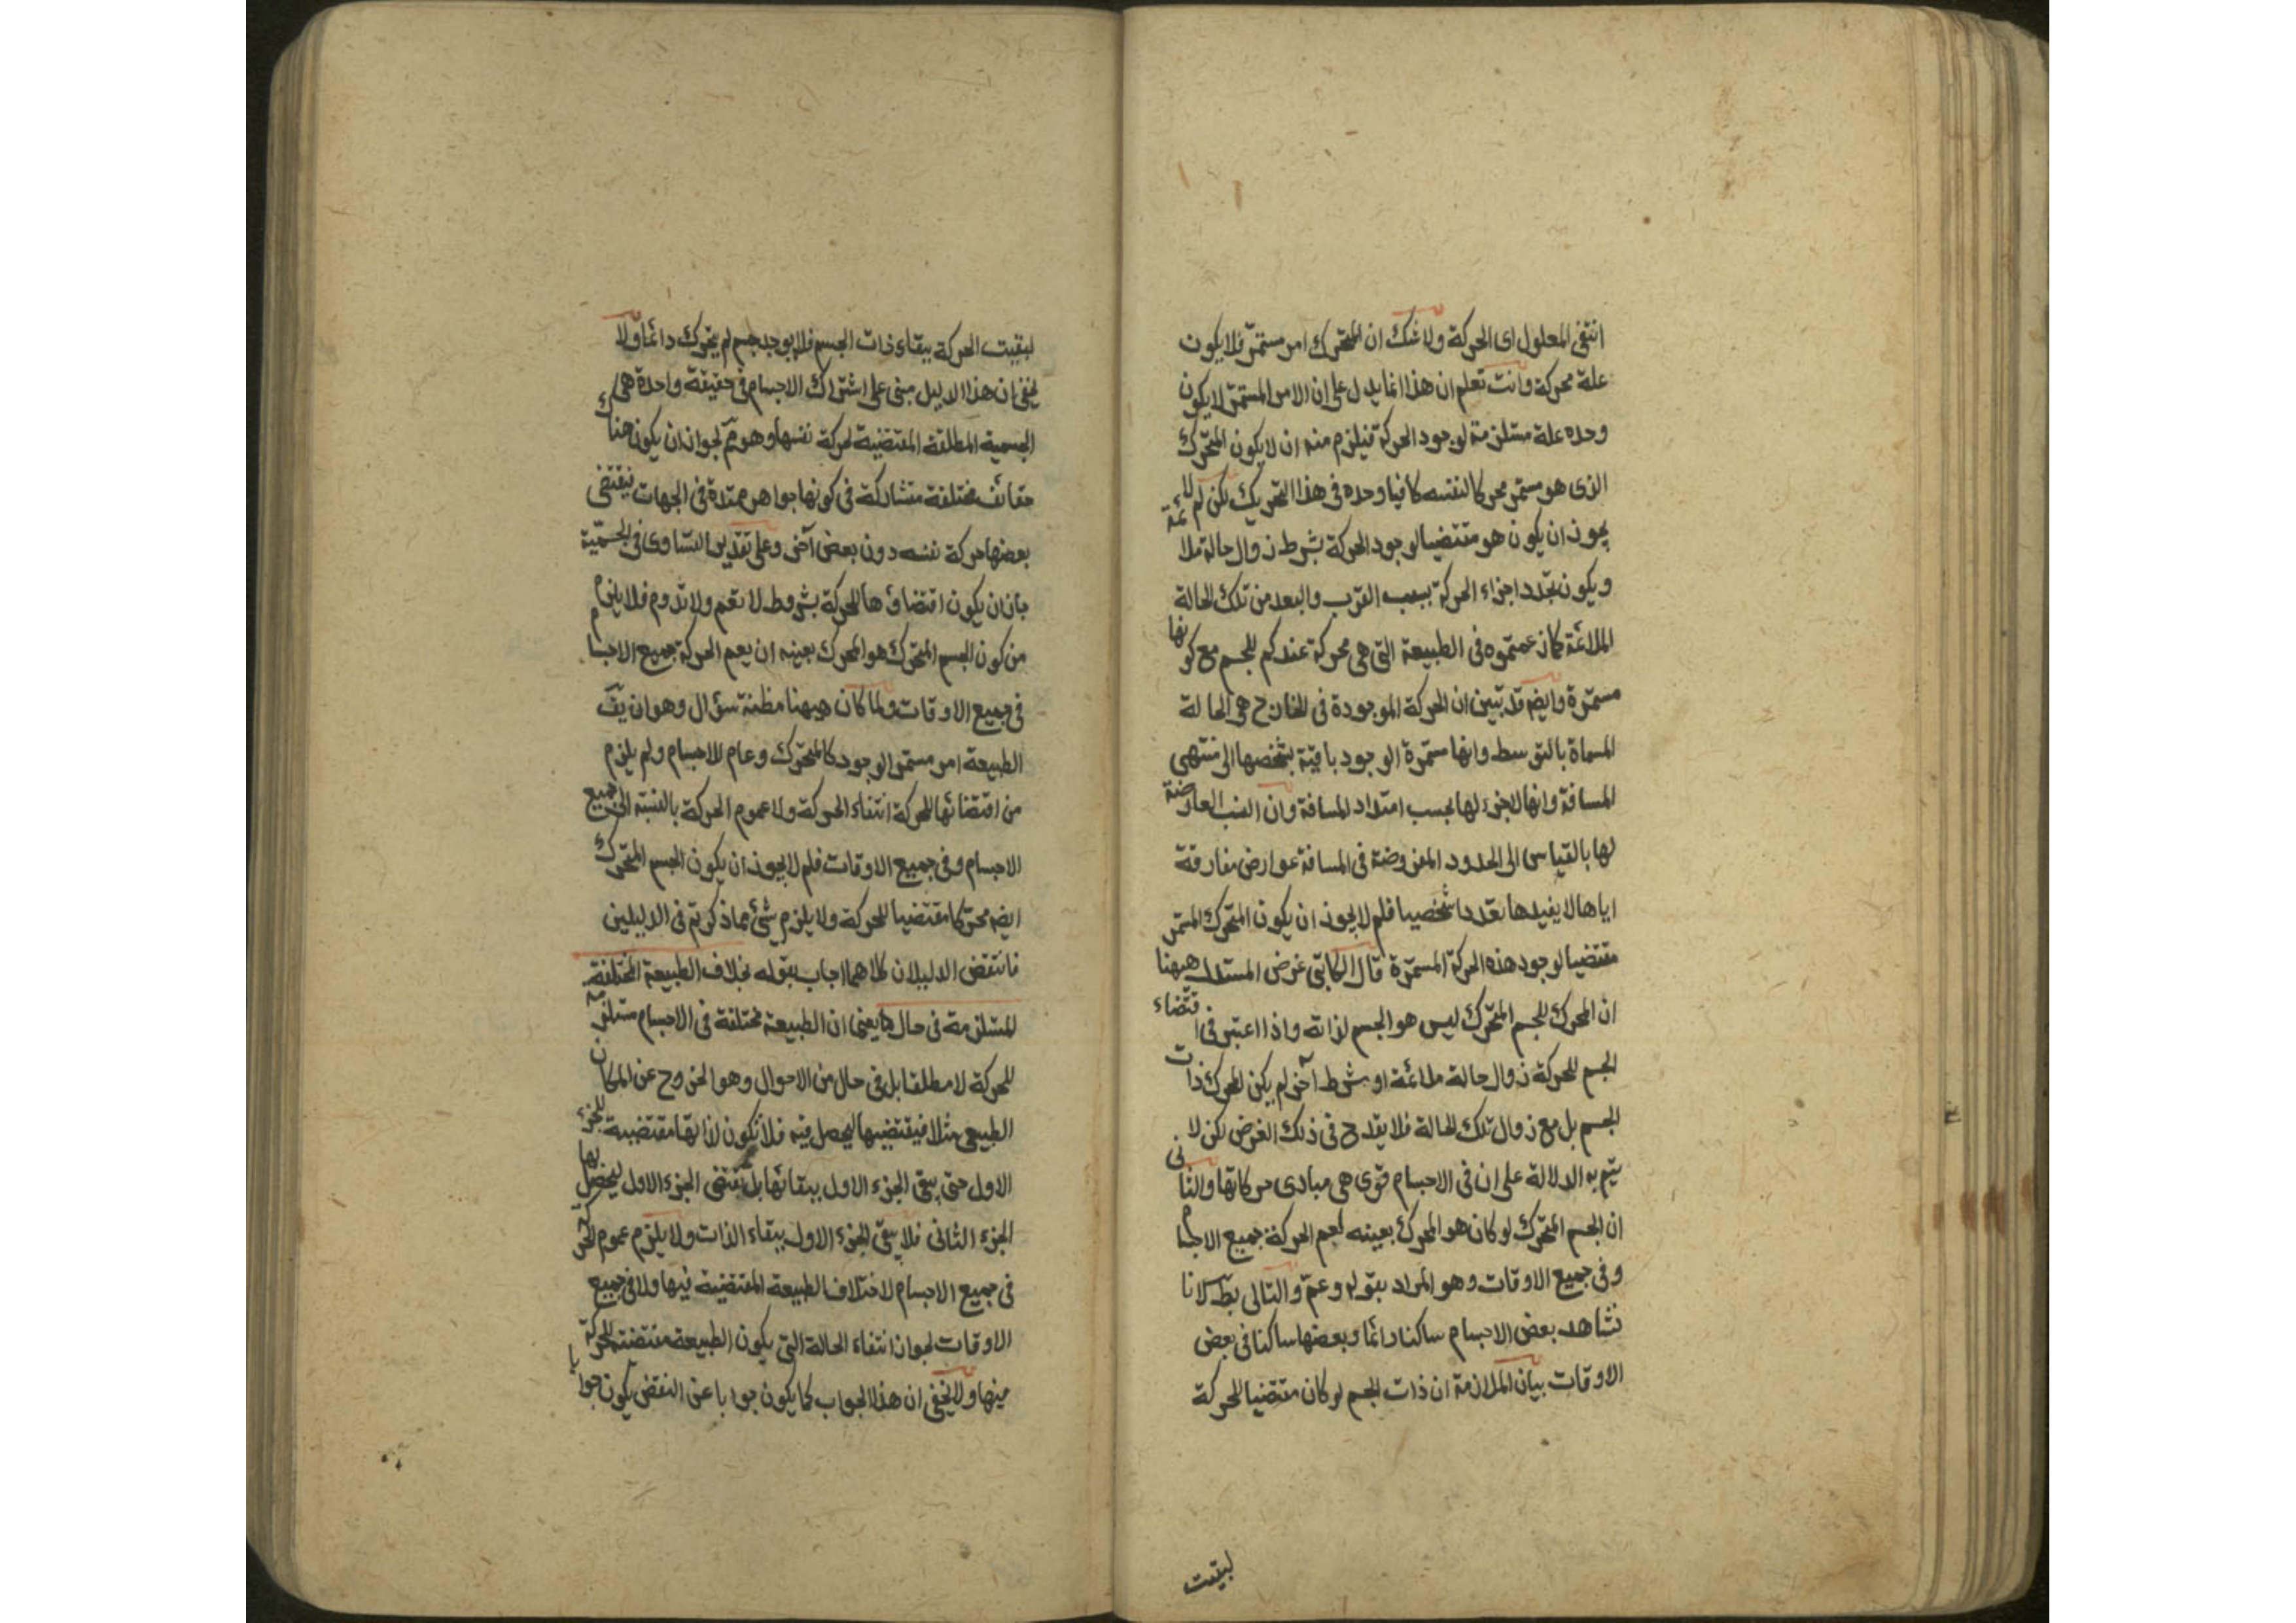 انتفى المعلول اى الحركة ولا شك ان المتحرك امر مستمر فلا يكون
علة محركة وانت تعلم ان هذا انما يدل على ان الامر المستمر لا يكون
وحده علة مستلزمة لوجود الحركة فيلزم منه ان لا يكون المتحرك
الذى هو مستمر محركا لنفسه كافيا وحده فى هذا التحريك لكن لم لا
يجوز ان يكون هو مقتضيا لوجود الحركة بشرط زوال حالة ملائمة
ويكون تجدد اجزاء الحركة بسبب القرب والبعد من تلك الحالة
الملائمة كما زعمتموه فى الطبيعة التى هى محركة عندكم للجسم مع كونها
مستمرة وايضه قد تبين ان الحركة الموجودة فى الخارج هى الحالة
المسماة بالتوسط وانها مستمرة الوجود باقية بشخصها الى منتهى
المسافة وانها لا جزء لها بحسب امتداد المسافة وان النسب العارضة
لها بالقياس الى الحدود المفروضة فى المسافة عوارض مفارقة
اياها لا يفيدها تعددا شخصيا فلم لا يجوز ان يكون المتحرك المستمر
مقتضيا لوجود هذه الحركة المستمرة قال الكاتبى غرض المستدل ههنا
ان المحرك للجسم المتحرك ليس هو الجسم لذاته واذا اعتبر فى اقتضاء
الجسم للحركة زوال حالة ملائمة او شرط آخر لم يكن المحرك ذات
الجسم بل مع زوال تلك الحالة فلا يقدح فى ذلك الغرض لكن لا
يتم به الدلالة على ان فى الاجسام قوى هى مبادى حركاتها والثانى
ان الجسم المتحرك لو كان هو المحرك بعينه لعم الحركة جميع الاجسام
وفى جميع الاوقات وهو المراد بقوله وعم والتالى بط لانا
نشاهد بعض الاجسام ساكنا دائما وبعضها ساكنا فى بعض
الاوقات بيان الملازمة ان ذات الجسم لو كان مقتضيا للحركة
لبقيت
لبقيت الحركة ببقاء ذات الجسم فلا يوجد جسم لم يتحرك دائما ولا
يخفى ان هذا الدليل مبنى على اشتراك الاجسام فى حقيقة واحدة هى
الجسمية المطلقة المقتضية لحركة نفسها وهو مم لجواز ان يكون هناك
حقائق مختلفة متشاركة فى كونها جواهر ممتدة فى الجهات فيقتضى
بعضها حركة نفسه دون بعض آخر وعلى تقدير التساوى فى الجسمية
جاز ان يكون اقتضاؤها للحركة بشروط لا تعم ولا تدوم فلا يلزم
من كون الجسم المتحرك هو المحرك بعينه ان يعم الحركة جميع الاجسام
فى جميع الاوقات ولما كان ههنا مظنة سؤال وهو ان يق
الطبيعة امر مستمر الوجود كالمتحرك وعام للاجسام ولم يلزم
من اقتضائها للحركة انتفاء الحركة ولا عموم الحركة بالنسبة الى جميع
الاجسام وفى جميع الاوقات فلم لا يجوز ان يكون الجسم المتحرك
ايضه محركا مقتضيا للحركة ولا يلزم شئ مما ذكرتم فى الدليلين
فانتقض الدليلان كلاهما اجاب بقوله بخلاف الطبيعة المختلفة
المستلزمة فى حال ما يعنى ان الطبيعة مختلفة فى الاجسام مستلزمة
للحركة لا مطلقا بل فى حال من الاحوال وهو الخروج عن المكان
الطبيعى مثلا فيقتضيها ليحصل فيه فلا تكون لذاتها مقتضية للجزء
الاول حتى يبقى الجزء الاول ببقائها بل تقتضى الجزء الاول ليحصل بها
الجزء الثانى فلا يبقى الجزء الاول ببقاء الذات ولا يلزم عموم الحركة
فى جميع الاجسام لاختلاف الطبيعة المقتضية فيها ولا فى جميع
الاوقات لجواز انتفاء الحالة التى يكون الطبيعة مقتضية للحركة
فيها ولا يخفى ان هذا الجواب كما يكون جوابا عن النقض يكون جوابا